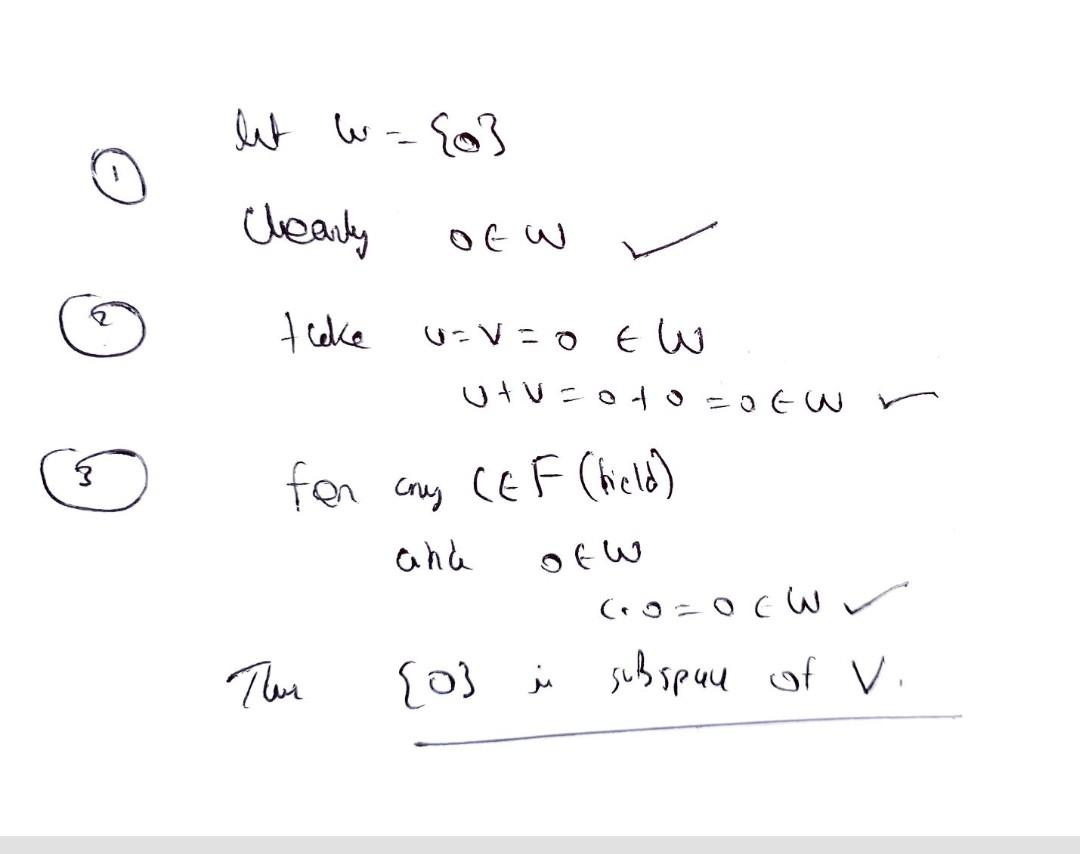 let W = {0}
①
Clearly 0 ∈ W ✓
② take u = v = 0 ∈ W
u + v = 0 + 0 = 0 ∈ W ✓
③ for any C ∈ F (field)
and 0 ∈ W
c · 0 = 0 ∈ W ✓
Thus {0} is subspace of V.